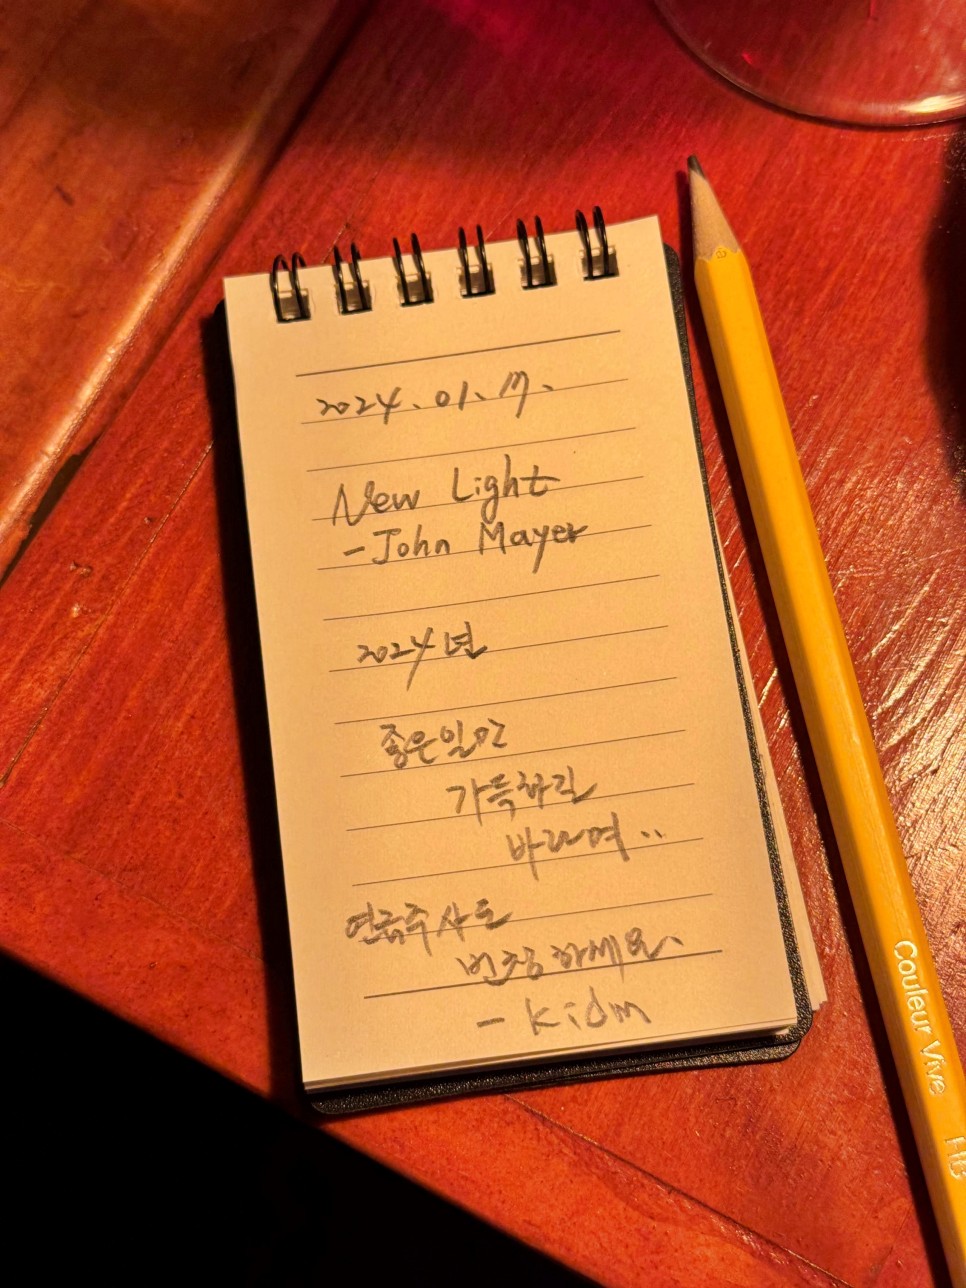 2024. 01. 17.
New Light
- John Mayer
2024년
좋은일만
가득하길
바라며..
번창하세요.
- kidm
Couleur Vive
HB